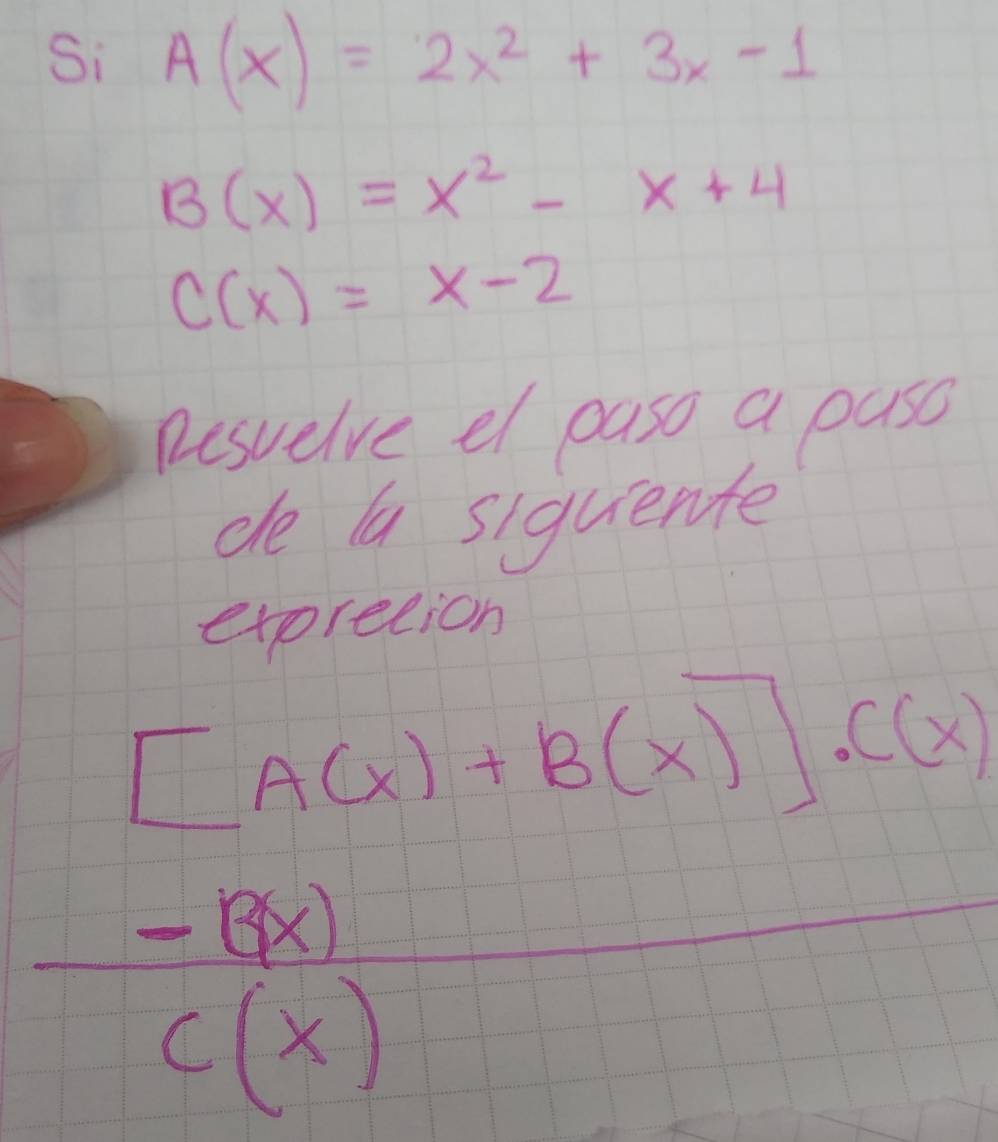 Si A(x) = 2x² + 3x - 1
B(x) = x² - x + 4
C(x) = x - 2
Resuelve el paso a paso
de la siguiente
exprecion
[A(x) + B(x)] . C(x)
- B(x)
C(x)